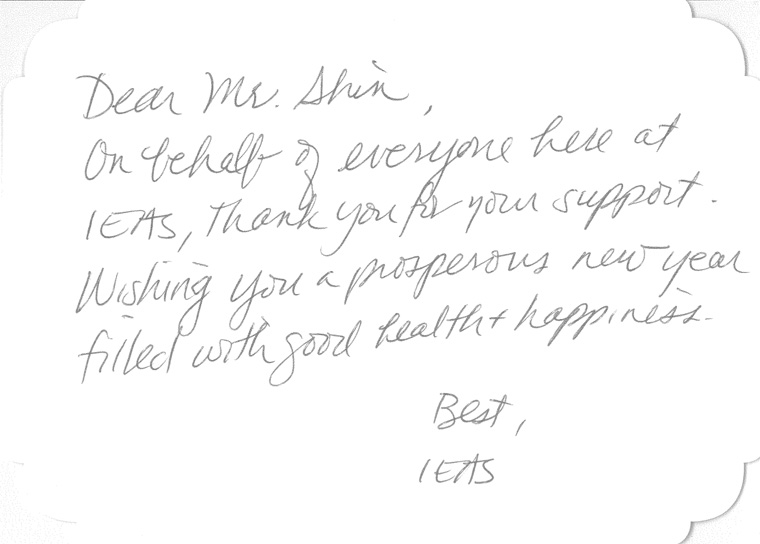 Dear Mr. Shin,
On behalf of everyone here at
IEAS, thank you for your support.
Wishing you a prosperous new year
filled with good health + happiness.
Best,
IEAS